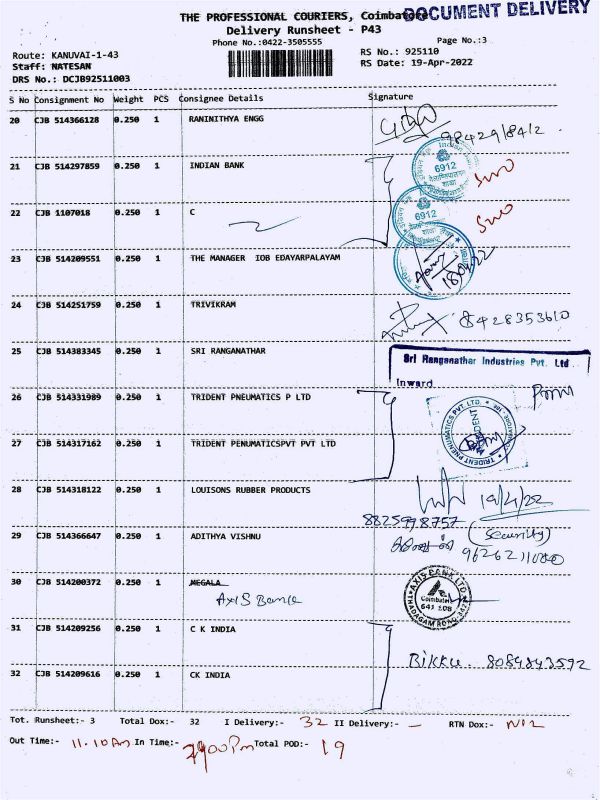 THE PROFESSIONAL COURIERS, Coimbatore
DOCUMENT DELIVERY
Delivery Runsheet - P43
Phone No.:0422-3505555
Page No.:3
Route: KANUVAI-1-43
RS No.: 925110
Staff: NATESAN
RS Date: 19-Apr-2022
DRS No.: DCJB92511003
S No Consignment No Weight PCS Consignee Details Signature
20 CJB 514366128 0.250 1 RANINITHYA ENGG
9842918412
21 CJB 514297859 0.250 1 INDIAN BANK
6912
22 CJB 1107018 0.250 1 C
6912
23 CJB 514209551 0.250 1 THE MANAGER IOB EDAYARPALAYAM
24 CJB 514251759 0.250 1 TRIVIKRAM
8428353610
25 CJB 514383345 0.250 1 SRI RANGANATHAR
Sri Ranganathar Industries Pvt. Ltd
Inward
26 CJB 514331989 0.250 1 TRIDENT PNEUMATICS P LTD
TRIDENT PNEUMATICS PVT LTD.
TRIDENT
27 CJB 514317162 0.250 1 TRIDENT PENUMATICSPVT PVT LTD
28 CJB 514318122 0.250 1 LOUISONS RUBBER PRODUCTS
19/4/22
8825998757
29 CJB 514366647 0.250 1 ADITHYA VISHNU
(Security)
30 CJB 514200372 0.250 1 MEGALA
Axis Bank
AXIS BANK LTD
Coimbatore
THADAGAM ROAD
31 CJB 514209256 0.250 1 C K INDIA
Bikku. 8084843592
32 CJB 514209616 0.250 1 CK INDIA
Tot. Runsheet:- 3 Total Dox:- 32 I Delivery:- 32 II Delivery:- - RTN Dox:- NIL
Out Time:- 11.10Am In Time:- 7.00Pm Total POD:- 19